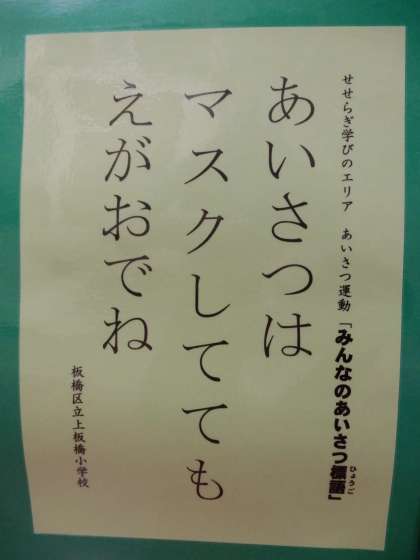 せせらぎ学びのエリア　あいさつ運動「みんなのあいさつ標語」
ひょうご
あいさつは
マスクしてても
えがおでね
板橋区立上板橋小学校